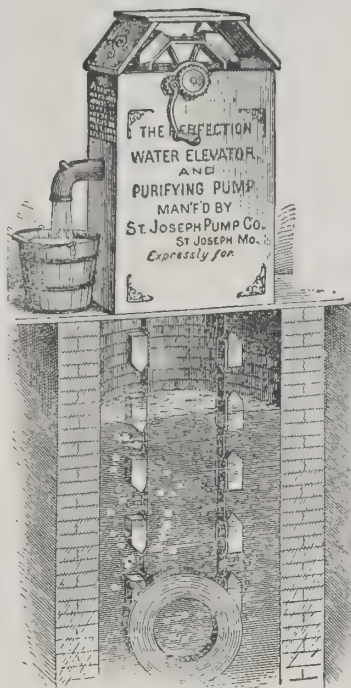 THE PERFECTION
WATER ELEVATOR
AND
PURIFYING PUMP
MAN'F'D BY
ST. JOSEPH PUMP CO.
ST JOSEPH MO.
Expressly for